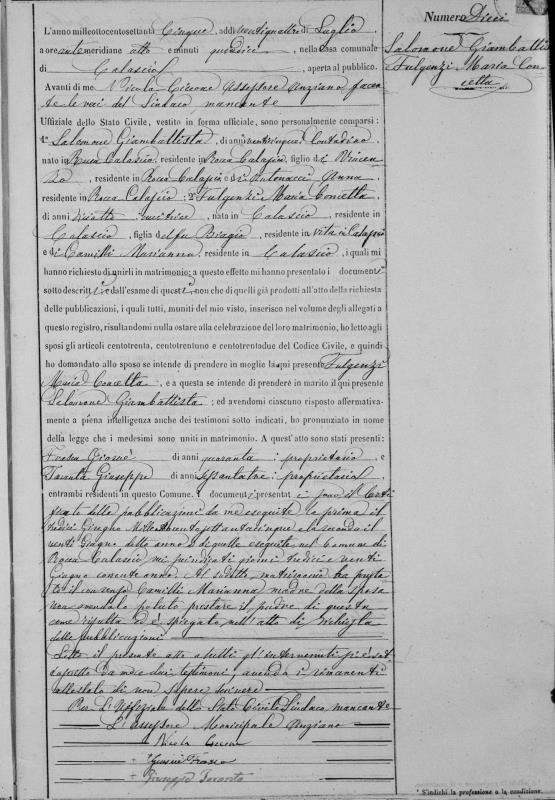 Numero Dieci
Salomone Giambattista
e Fulgenzi Maria Con-
cetta
L'anno milleottocentosettanta Cinque, addì ventiquattro di Luglio
a ore antimeridiane otto e minuti quindici, nella Casa comunale
di Calascio, aperta al pubblico.
Avanti di me Nicola Ciccone Assessore Anziano facen
te le veci del Sindaco mancante
Uffiziale dello Stato Civile, vestito in forma uffiziale, sono personalmente comparsi:
1° Salomone Giambattista, di anni venticinque Contadino
nato in Rocca Calascio, residente in Rocca Calascio, figlio di Vincen
zo, residente in Rocca Calascio e di Antonacci Anna
residente in Rocca Calascio; 2° Fulgenzi Maria Concetta
di anni diciotto cucitrice, nata in Calascio, residente in
Calascio, figlia del fu Biagio, residente in vita in Calascio
e di Camilli Marianna, residente in Calascio, i quali mi
hanno richiesto di unirli in matrimonio; a questo effetto mi hanno presentato i documenti
sotto descritti; e dall'esame di questi, non che di quelli già prodotti all'atto della richiesta
delle pubblicazioni, i quali tutti, muniti del mio visto, inserisco nel volume degli allegati a
questo registro, risultandomi nulla ostare alla celebrazione del loro matrimonio, ho letto agli
sposi gli articoli centotrenta, centotrentuno e centotrentadue del Codice Civile, e quindi
ho domandato allo sposo se intende di prendere in moglie la qui presente Fulgenzi
Maria Concetta, e a questa se intende di prendere in marito il qui presente
Salomone Giambattista; ed avendomi ciascuno risposto affermativa-
mente a piena intelligenza anche dei testimoni sotto indicati, ho pronunziato in nome
della legge che i medesimi sono uniti in matrimonio. A quest'atto sono stati presenti:
Frasca Giosuè di anni quaranta proprietario e
Taranta Giuseppe di anni sessantatre proprietario
entrambi residenti in questo Comune. I documenti presentati sono il Certi
ficato delle pubblicazioni da me eseguite la prima il
tredici Giugno Milleottocentosettantacinque e la seconda il
venti Giugno dello anno e di quelle eseguite nel Comune di
Rocca Calascio nei giorni tredici e venti
Giugno corrente anno. Al suddetto matrimonio ha presta
to il consenso Camilli Marianna madre della sposa
non avendolo potuto prestare il padre di questa
come risulta ed è spiegato nell'atto di richiesta
delle pubblicazioni
Letto il presente atto a tutti gl'intervenuti si è sot
toscritto da me e dai testimoni, avendo i rimanenti
attestato di non sapere scrivere
Per l'Uffiziale dello Stato Civile Sindaco mancante
L'Assessore Municipale Anziano
Nicola Ciccone
Giosuè Frasca
Giuseppe Taranta
¹ S'indichi la professione o la condizione.